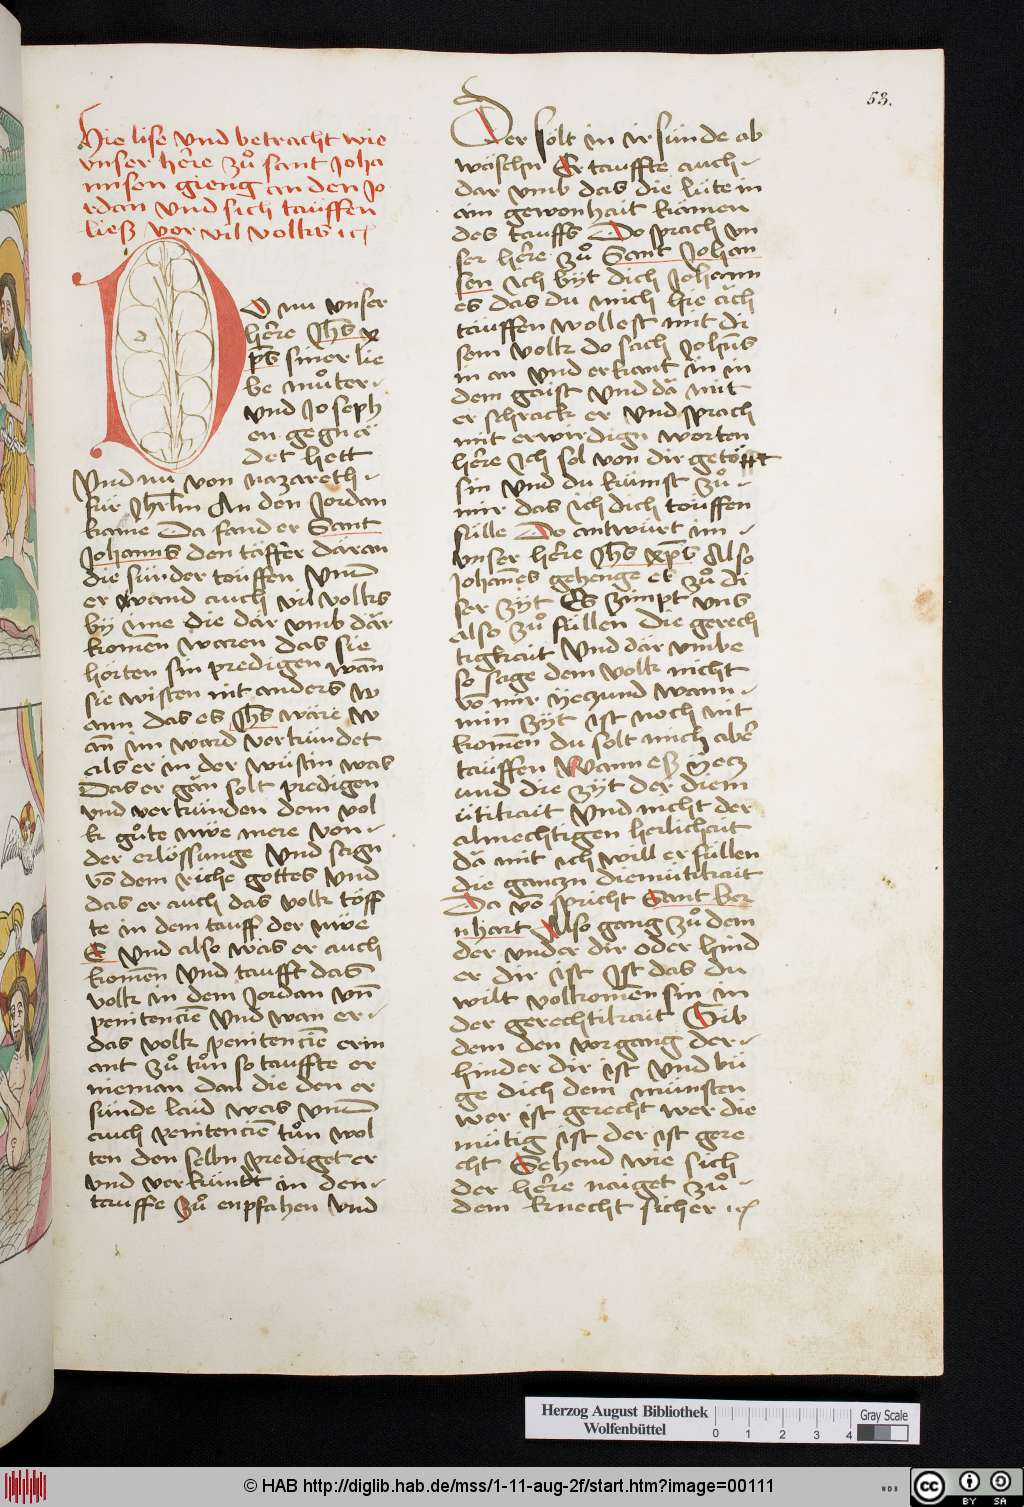 53.
Hie lise vnd betracht wie
vnser herre zuͦ sant Joha
nnsen gieng an den Jo
rdan vnd sich tauffen
ließ vor vil volks
DO nu vnser
herre Jhs x
ps siner lie
be muͦter
vnd Joseph
en gegnä
det hett
Vnd nu von nazareth
für Jhrlm An den Jordan
kame Da fand er Sant
Johanns den töffer daran
die sünder touffen Vnd
er vand auch vil volks
by ime die dar vmb där
komen waren das sie
hörten sin predigen wan̄
sie wisten nit anders w
ann das es Jhs wäre w
an̄ im ward verkündet
als er in der wüstin was
Das er gän solt predigen
vnd verkünden dem vol
k guͦte nüwe mere von
der erlössunge Vnd sagn
vō dem riche gottes Vnd
das er auch das volk töff
te in dem tauff der nüwe
E Vnd also was er auch
komen Vnd taufft das
volk in dem Jordan vnd
penitencie Vnd wan er
das volk penitencie erm
ant zuͦ tuͦn so tauffte er
nieman dan die den er
sünde laid was Vnd
auch penitencie tuͦn wol
ten den selbn prediget er
vnd verkündt in den
tauffe zuͦ enpfahen Vnd
Der solt in ir sünde ab
wäschn Er tauffte auch
dar vmb das die lüte in
ain gewonhait kämen
des tauffs Do sprach vn
ser herre zuͦ Sant Johan
sen ich byt dich Johann
es das du mich hie äch
täuffen wollest mit di
sem volk do sach Johns
in an vnd erkant in in
dem gaist Vnd dä mit
er schrack er Vnd sprach
mit erwirdign worten
herre Ich sol von dir getöfft
sin Vnd du kümst zuͦ
mir das ich dich touffen
sülle Do antwürt im
vnser herre Jhs xps Also
Johannes gehenge es zuͦ di
ser zyt Es zimpt vns
also zuͦ füllen die gerech
tigkait Vnd där vmbe
so sage dem volk nicht
vō mir yeczund wann
min zyt ist noch nit
komen du solt mich aber
tauffen Wann es yecz
und die zyt der diem
ütikait Vnd nicht der
almechtigen herlichait
dä mit ich will erfüllen
die ganczn diemütikait
Da vō spricht Sant ber
nhart Also gang zuͦ dem
der vnder dir oder hind
er dir ist Ist das du
wilt volkomen sin in
der gerechtikait Gib
dem den vorgang der
hinder dir ist Vnd bü
ge dich dem münsten
wer ist gerecht wer die
mütig ist der ist gere
cht Sehend wie sich
der herre naiget zuͦ
dem knecht sicher
Herzog August Bibliothek
Wolfenbüttel
0 1 2 3 4
Gray Scale
© HAB http://diglib.hab.de/mss/1-11-aug-2f/start.htm?image=00111
WDB
CC BY SA